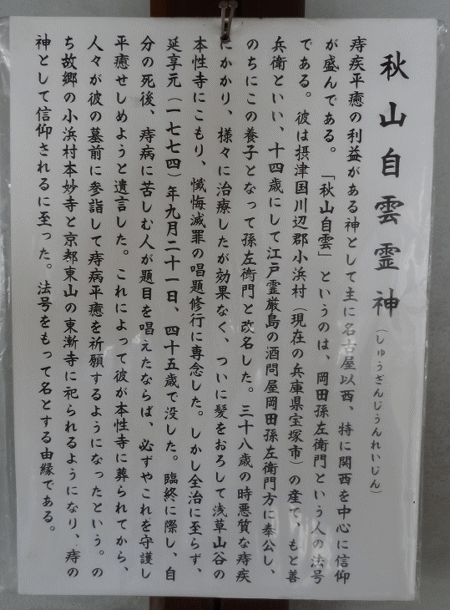 秋山自雲霊神
(しゅうざんじうんれいじん)
痔疾平癒の利益がある神として主に名古屋以西、特に関西を中心に信仰
が盛んである。「秋山自雲」というのは、岡田孫左衛門という人の法号
である。彼は摂津国川辺郡小浜村(現在の兵庫県宝塚市)の産で、もと善
兵衛といい、十四歳にして江戸霊厳島の酒問屋岡田孫左衛門方に奉公し、
のちにこの養子となって孫左衛門と改名した。三十八歳の時悪質な痔疾
にかかり、様々に治療したが効果なく、ついに髪をおろして浅草山谷の
本性寺にこもり、懺悔滅罪の唱題修行に専念した。しかし全治に至らず、
延享元(一七七四)年九月二十一日、四十五歳で没した。臨終に際し、自
分の死後、痔病に苦しむ人が題目を唱えたならば、必ずやこれを守護し
平癒せしめようと遺言した。これによって彼が本性寺に葬られてから、
人々が彼の墓前に参詣して痔病平癒を祈願するようになったという。の
ち故郷の小浜村本妙寺と京都東山の東漸寺に祀られるようになり、痔の
神として信仰されるに至った。法号をもって名とする由縁である。